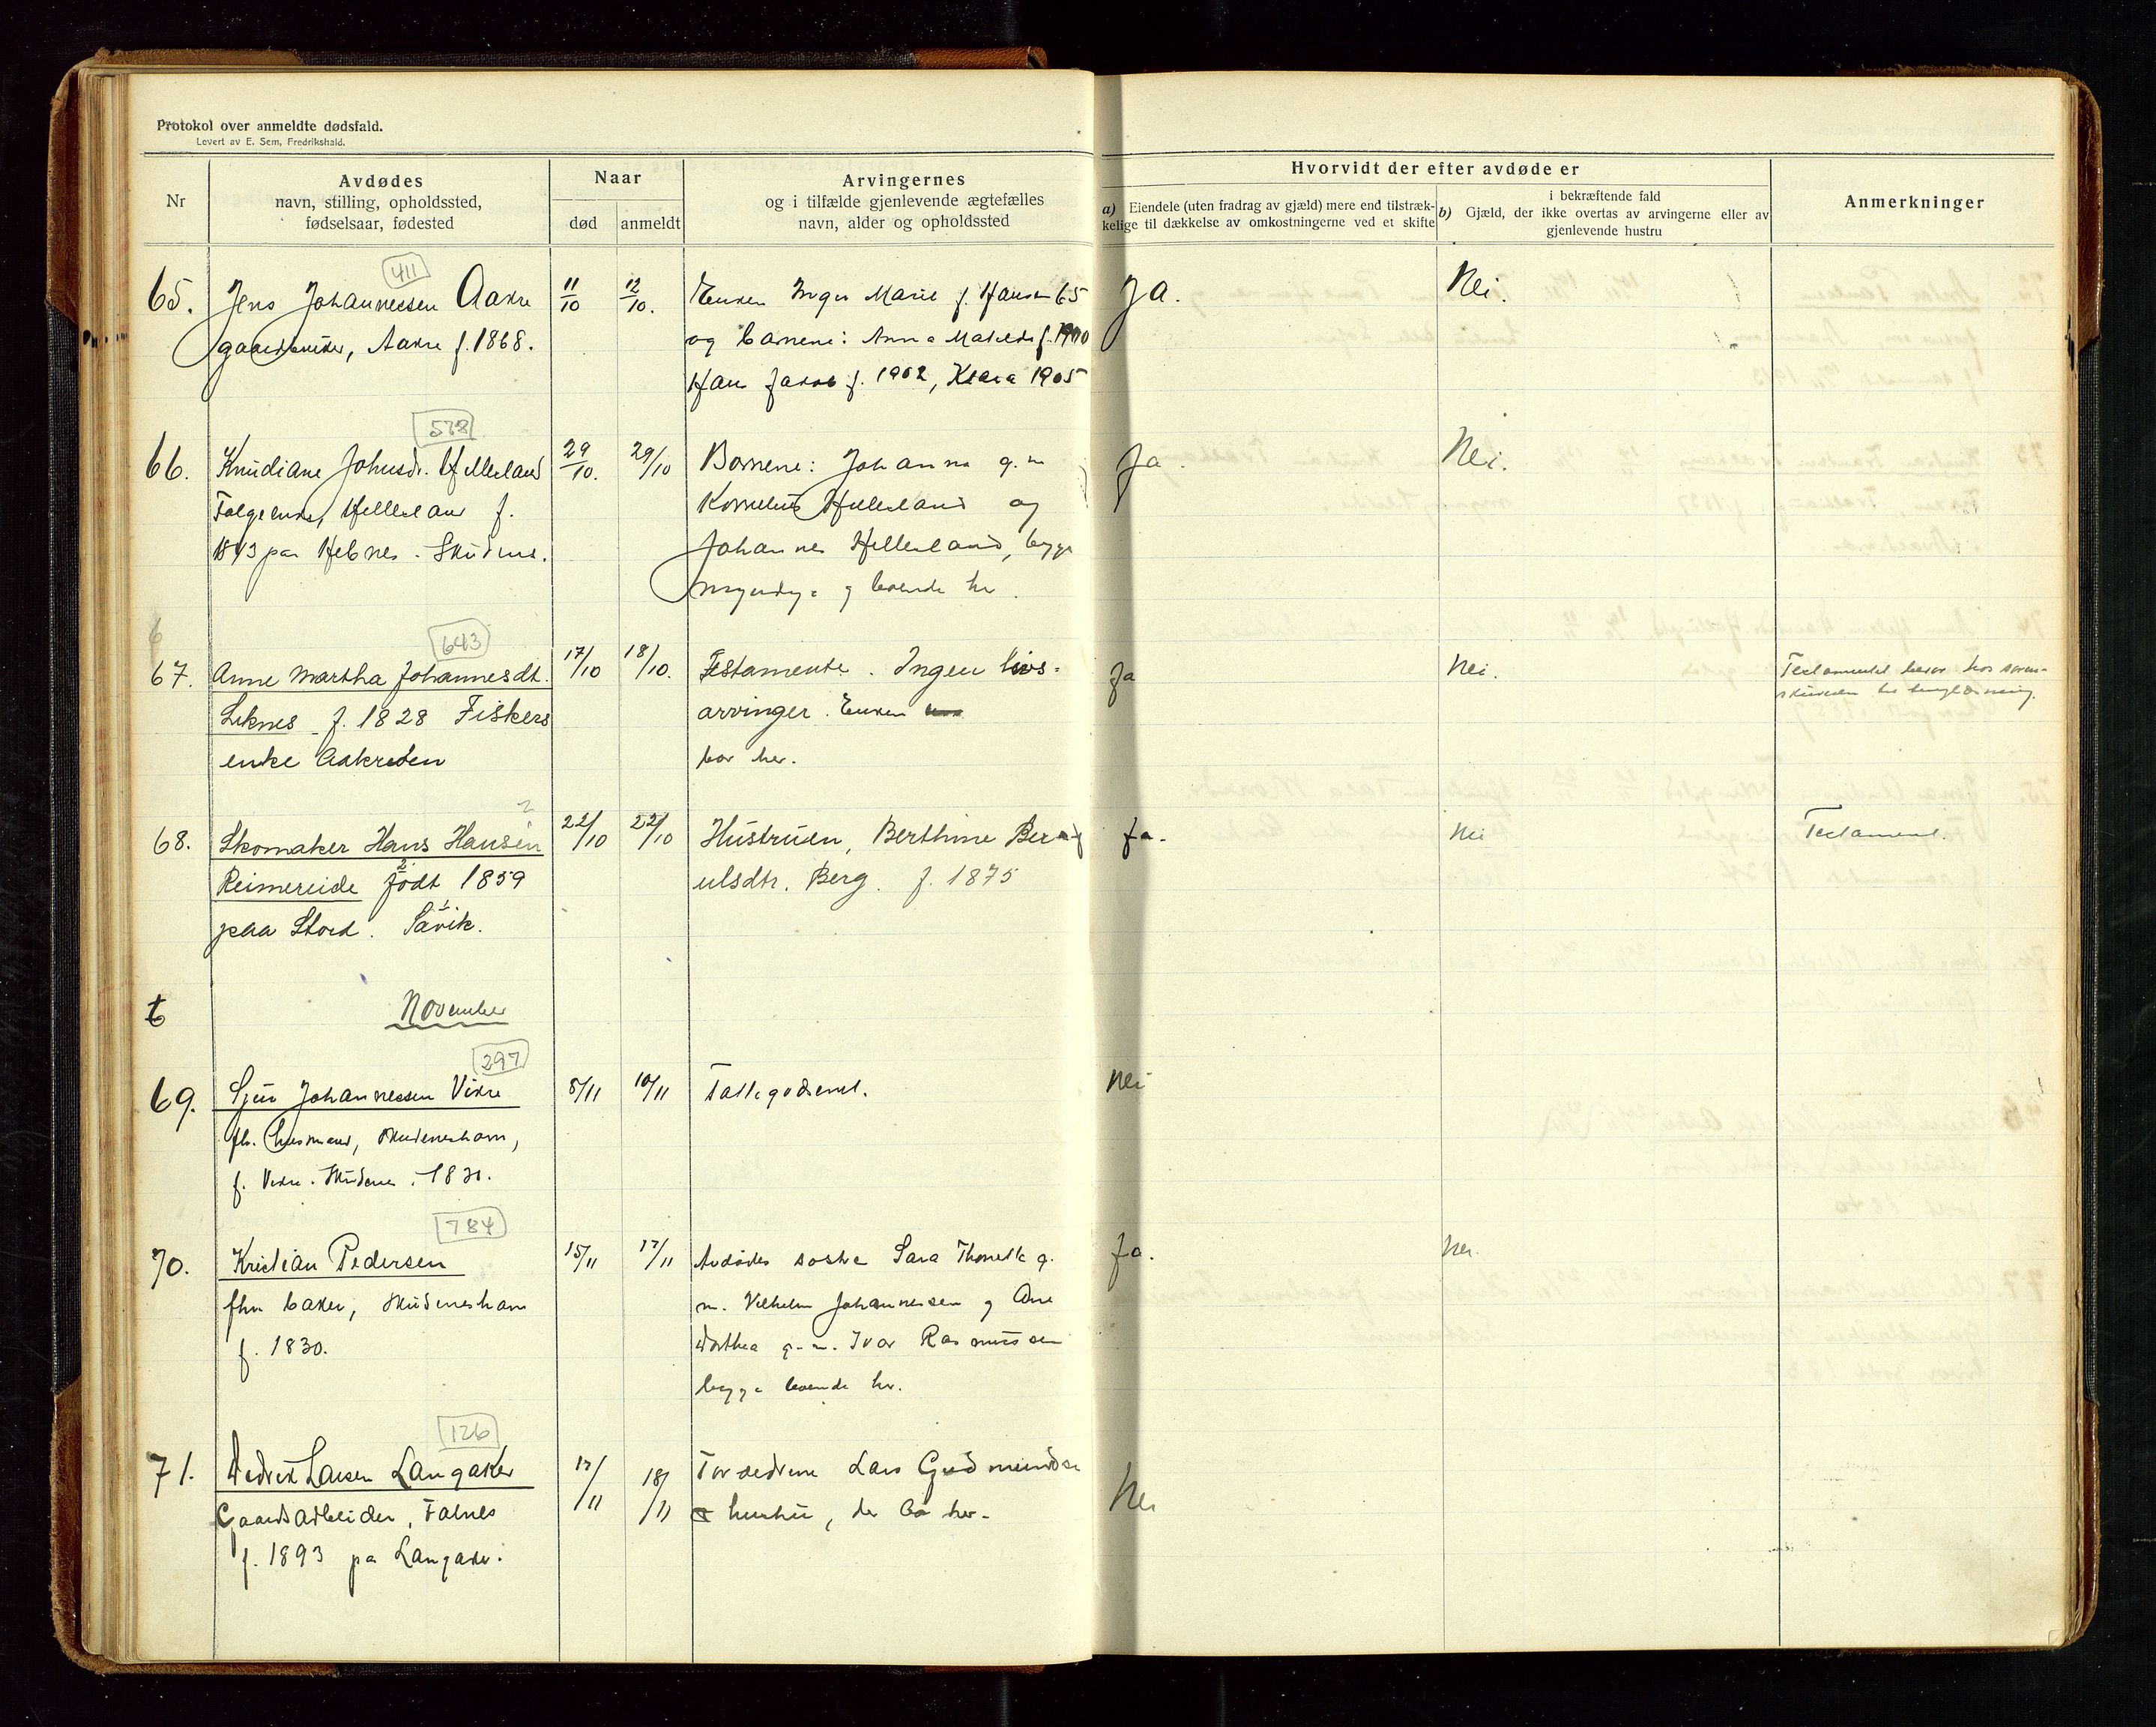 Protokol over anmeldte dødsfald.
Levert av E. Sem, Fredrikshald.
Nr
Avdødes
navn, stilling, opholdssted,
fødselsaar, fødested
Naar
død
anmeldt
Arvingernes
og i tilfælde gjenlevende ægtefælles
navn, alder og opholdssted
Hvorvidt der efter avdøde er
a) Eiendele (uten fradrag av gjæld) mere end tilstræk-
kelige til dækkelse av omkostningerne ved et skifte
i bekræftende fald
b) Gjæld, der ikke overtas av arvingerne eller av
gjenlevende hustru
Anmerkninger
411
65. Jens Johannessen Aakre 11/10 12/10. Enken Inger Marie f. Hansen 65 Ja. Nei.
gaardbruker, Aakre f. 1868. og barnene: Anna Matilde f. 1900
Hans Jakob f. 1902, Klara 1905
578
66. Knudiane Johnsdr. Hellerland 29/10. 29/10 Børnene: Johanna g. m Ja. Nei.
Følgeenke, Hellerland f. Kornelius Hellerland og
1843 paa Hebnes - Skudenes. Johannes Hellerland, begge
myndige og boende her.
643
67. Anne Martha Johannesdt. 17/10 18/10. Testamente. Ingen livs- Ja Nei. Testamentet beror hos soren-
Liknes f. 1828 Fiskers arvinger. Enken
skriveren
enke Aakrehen bor her.
68. Skomaker Hans Hansen 22/10 22/10 Hustruen, Berthine Ber Ja. Nei Testament.
Reimereide født 1859 ulsdtr. Berg. f. 1875
paa Stord. Sävik.
November
297
69. Sjur Johannessen Vikre 8/11 10/11 Fattigvæsenet. Nei
fh. husmand, Skudeneshavn,
f. Vikre. Skudenes. 1830.
784
70. Kristian Pedersen 15/11 17/11 Avdødes søstre Sara Thonette g. Ja. Nei.
fhv baker, Skudeneshavn m. Vilhelm Johannessen og Ane
f. 1830. Dorthea g. m. Ivar Rasmussen
begge boende her.
126
71. Didrik Larsen Langaker 17/11 18/11 Forældrene Lars Gudmundsen Nei
Gaardsarbeider, Falnes & hustru, der bor her.
f. 1893 pa Langaker.